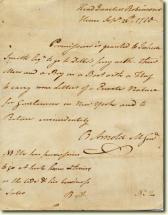 Head Quarters Robinsons
House Sepr. 22d. 1780
Permission is granted to Joshua
Smith Esqr. to go to Dobbs's ferry with three
Men and a Boy in a Boat with a Flag
to carry some Letters of a Private Nature
for Gentlemen in New York and to
Return immediately
B Arnold M Genl
NB He has permission
to go at such hours & times
as the tide & his business
Suits B A